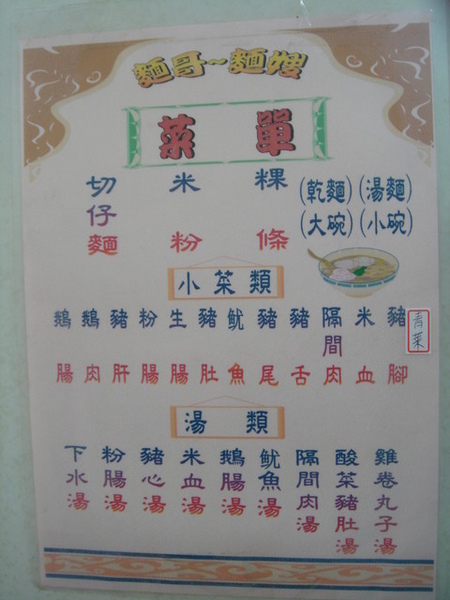 麵哥~麵嫂
菜單
切仔麵
米粉
粿條
(乾麵)(湯麵)
(大碗)(小碗)
小菜類
鵝腸
鵝肉
豬肝
粉腸
生腸
豬肚
魷魚
豬尾
豬舌
隔間肉
米血
豬腳
青菜
湯類
下水湯
粉腸湯
豬心湯
米血湯
鵝腸湯
魷魚湯
隔間肉湯
酸菜豬肚湯
雞卷丸子湯